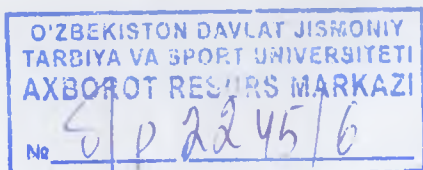 O'ZBEKISTON DAVLAT JISMONIY
TARBIYA VA SPORT UNIVERSITETI
AXBOROT RESURS MARKAZI
№ 2245/6